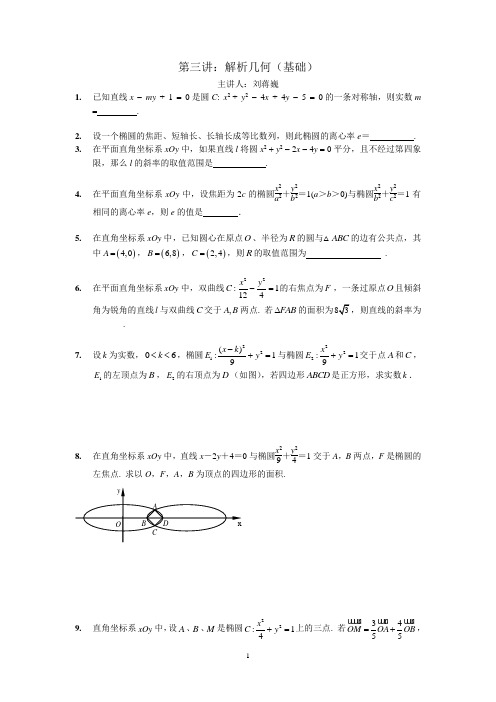 第三讲：解析几何（基础）
主讲人：刘蒋巍
1. 已知直线 x − my + 1 = 0 是圆 C: x² + y² − 4x + 4y − 5 = 0 的一条对称轴，则实数 m
= .
2. 设一个椭圆的焦距、短轴长、长轴长成等比数列，则此椭圆的离心率 e＝ .
3. 在平面直角坐标系 xOy 中，如果直线 l 将圆 x² + y² − 2x − 4y = 0 平分，且不经过第四象
限，那么 l 的斜率的取值范围是 .
4. 在平面直角坐标系 xOy 中，设焦距为 2c 的椭圆 x²/a² + y²/b² ＝1(a＞b＞0)与椭圆 x²/b² + y²/c² ＝1 有
相同的离心率 e，则 e 的值是 ．
5. 在直角坐标系 xOy 中，已知圆心在原点 O 、半径为 R 的圆与△ABC 的边有公共点，其
中 A = (4,0)，B = (6,8)，C = (2,4)，则 R 的取值范围为 .
6. 在平面直角坐标系 xOy 中，双曲线 C : x²/12 − y²/4 = 1 的右焦点为 F ，一条过原点 O 且倾斜
角为锐角的直线 l 与双曲线 C 交于 A,B 两点. 若 ΔFAB 的面积为 8√3 ，则直线的斜率为
.
7. 设 k 为实数，0 < k < 6，椭圆 E₁ : (x − k)²/9 + y² = 1 与椭圆 E₂ : x²/9 + y² = 1 交于点 A 和 C ，
E₁ 的左顶点为 B ，E₂ 的右顶点为 D（如图），若四边形 ABCD 是正方形，求实数 k .
8. 在直角坐标系 xOy 中，直线 x－2y＋4＝0 与椭圆 x²/9 + y²/4 ＝1 交于 A，B 两点，F 是椭圆的
左焦点. 求以 O，F，A，B 为顶点的四边形的面积.
y
A
O B D x
C
9. 直角坐标系 xOy 中，设 A、B、M 是椭圆 C : x²/4 + y² = 1 上的三点. 若 OM = 3/5 OA + 4/5 OB ，
1